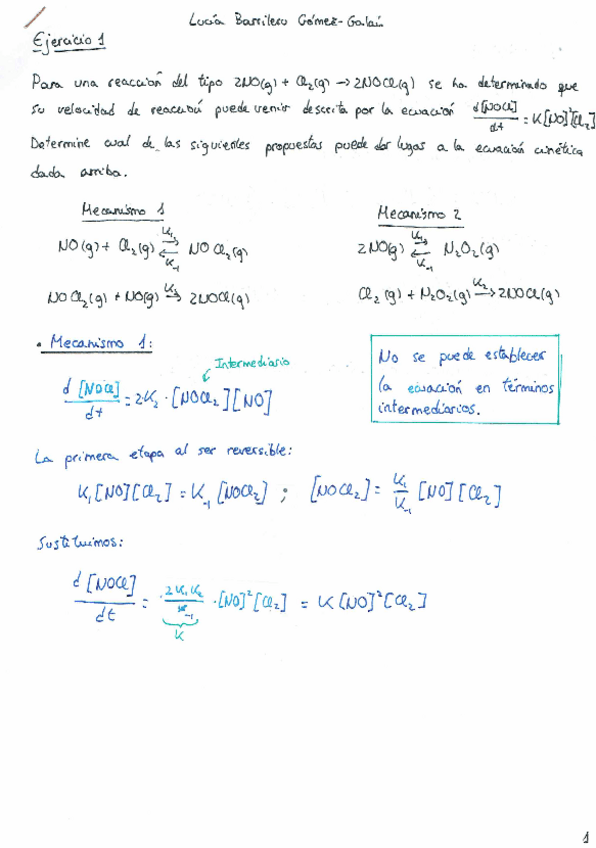 Lucía Barrilero Gómez-Galán
Ejercicio 1
Para una reacción del tipo 2NO(g) + Cl₂(g) → 2NOCl(g) se ha determinado que
su velocidad de reacción puede venir descrita por la ecuación d[NOCl]/dt = K[NO]²[Cl₂]
Determine cual de las siguientes propuestas puede dar lugar a la ecuación cinética
dada arriba.
Mecanismo 1
NO(g) + Cl₂(g) ⇌ NOCl₂(g) K₁ K₋₁
NOCl₂(g) + NO(g) →K₂ 2NOCl(g)
Mecanismo 2
2NO(g) ⇌ N₂O₂(g) K₋₁
Cl₂(g) + N₂O₂(g) →K₂ 2NOCl(g)
• Mecanismo 1:
Intermediario
d[NOCl]/dt = 2K₂ · [NOCl₂][NO]
No se puede establecer
la ecuación en términos
intermediarios.
La primera etapa al ser reversible:
K₁[NO][Cl₂] = K₋₁[NOCl₂] ; [NOCl₂] = K₁/K₋₁ [NO][Cl₂]
Sustituimos:
d[NOCl]/dt = 2K₁K₂/K₋₁ · [NO]²[Cl₂] = K[NO]²[Cl₂]
K
1